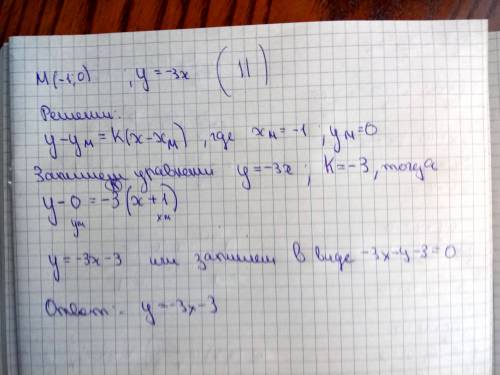 M(-1;0) , y = -3x ( || )
Решение:
y-yм = K(x-xм) , где xм = -1 , yм = 0
Запишем уравнение y = -3x ; K = -3 , тогда
y-0 = -3(x+1)
K
yм xм
y = -3x-3 или запишем в виде -3x-y-3=0
Ответ: y = -3x-3